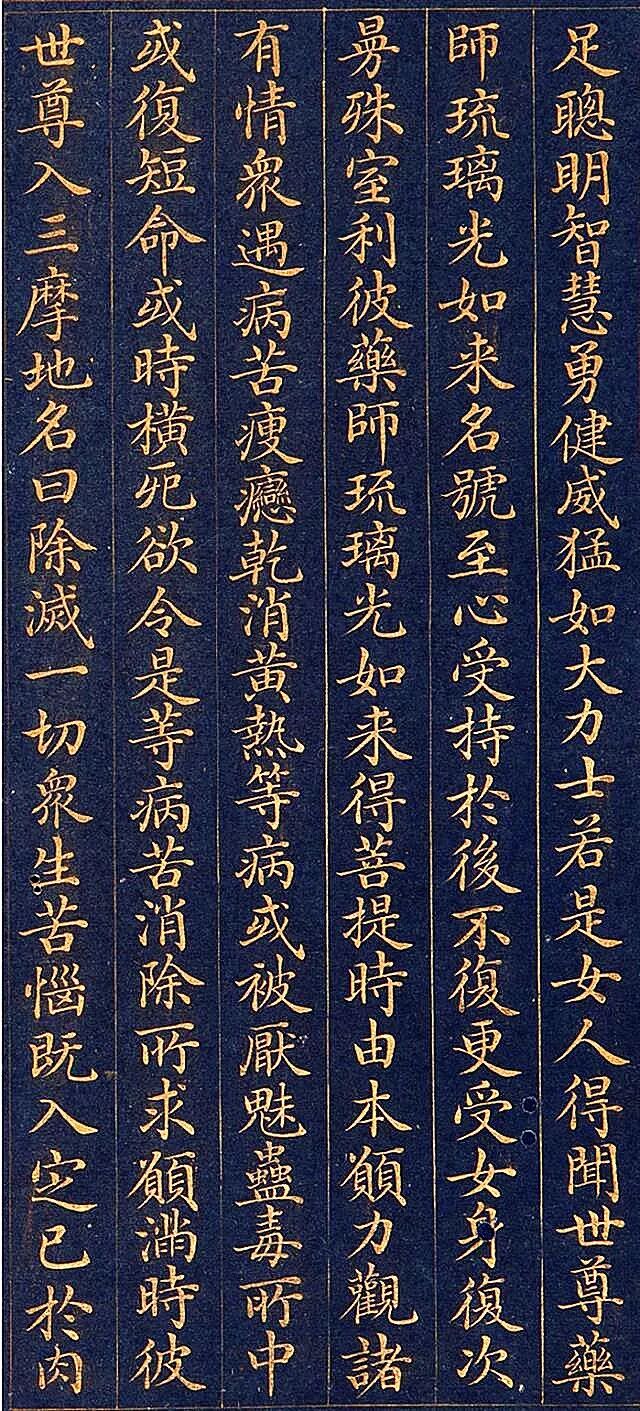 足聰明智慧勇健威猛如大力士若是女人得聞世尊藥
師琉璃光如来名號至心受持於後不復更受女身復次
曼殊室利彼藥師琉璃光如来得菩提時由本願力觀諸
有情衆遇病苦瘦癴乾消黄熱等病或被厭魅蠱毒所中
或復短命或時橫死欲令是等病苦消除所求願滿時彼
世尊入三摩地名曰除滅一切衆生苦惱既入定已於肉